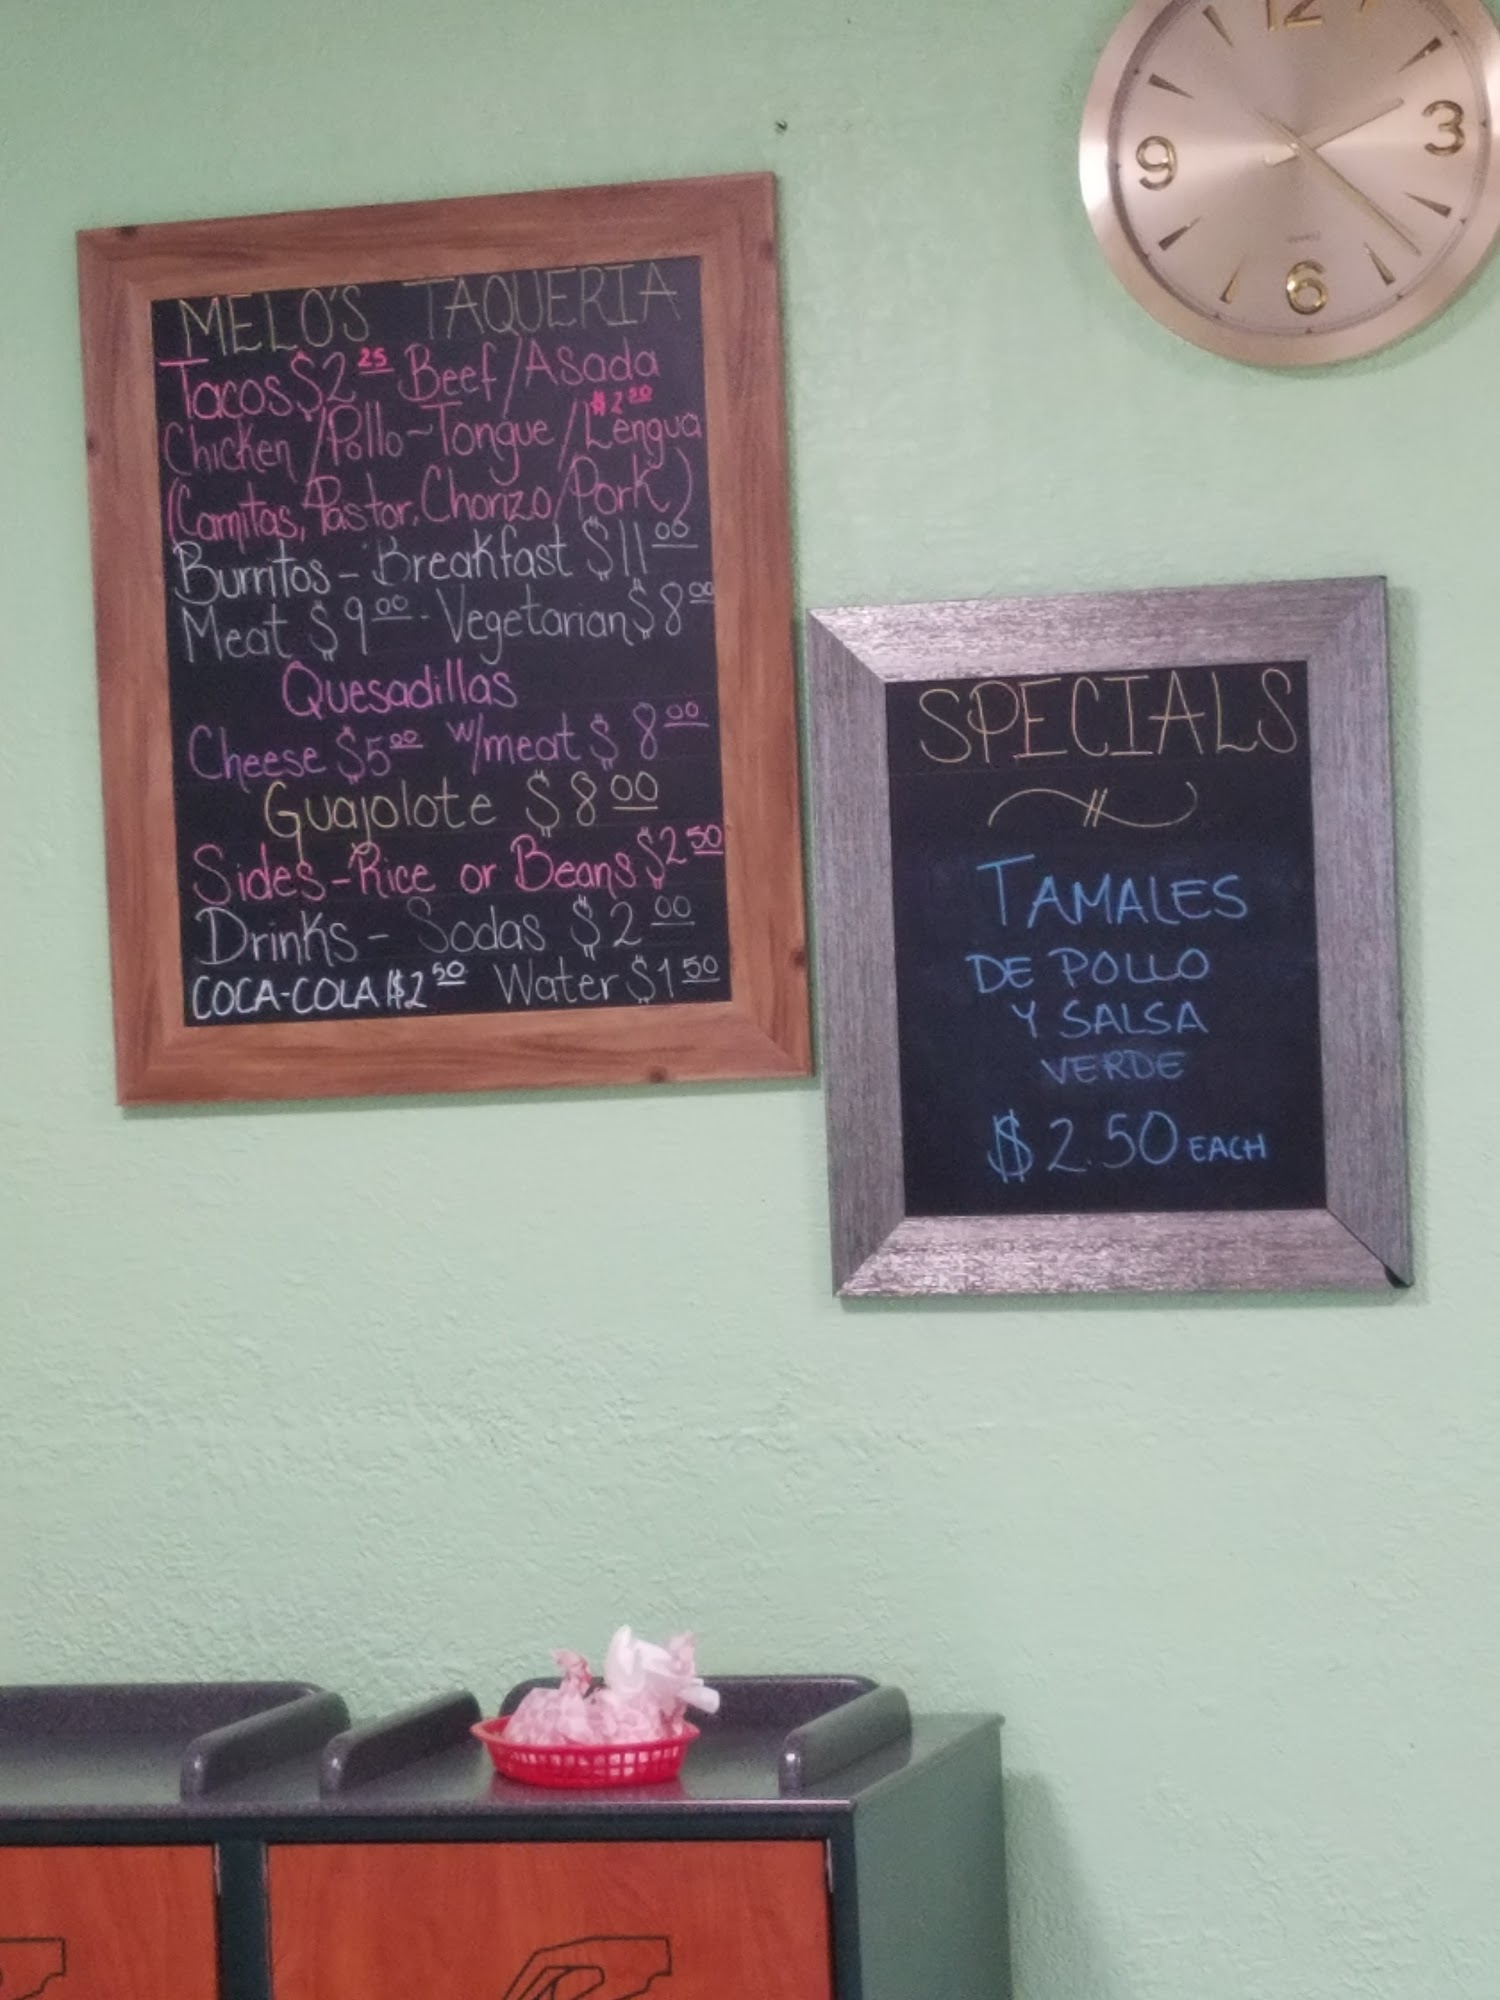 MELO'S TAQUERIA
Tacos $2.25 Beef/Asada
Chicken/Pollo~Tongue/Lengua $2.50
(Carnitas, Pastor, Chorizo/Pork)
Burritos - Breakfast $11.00
Meat $9.00 - Vegetarian $8.00
Quesadillas
Cheese $5.00 w/meat $8.00
Guajolote $8.00
Sides - Rice or Beans $2.50
Drinks - Sodas $2.00
COCA-COLA $2.50 Water $1.50
SPECIALS
TAMALES
DE POLLO
Y SALSA
VERDE
$2.50 EACH
12
3
9
6